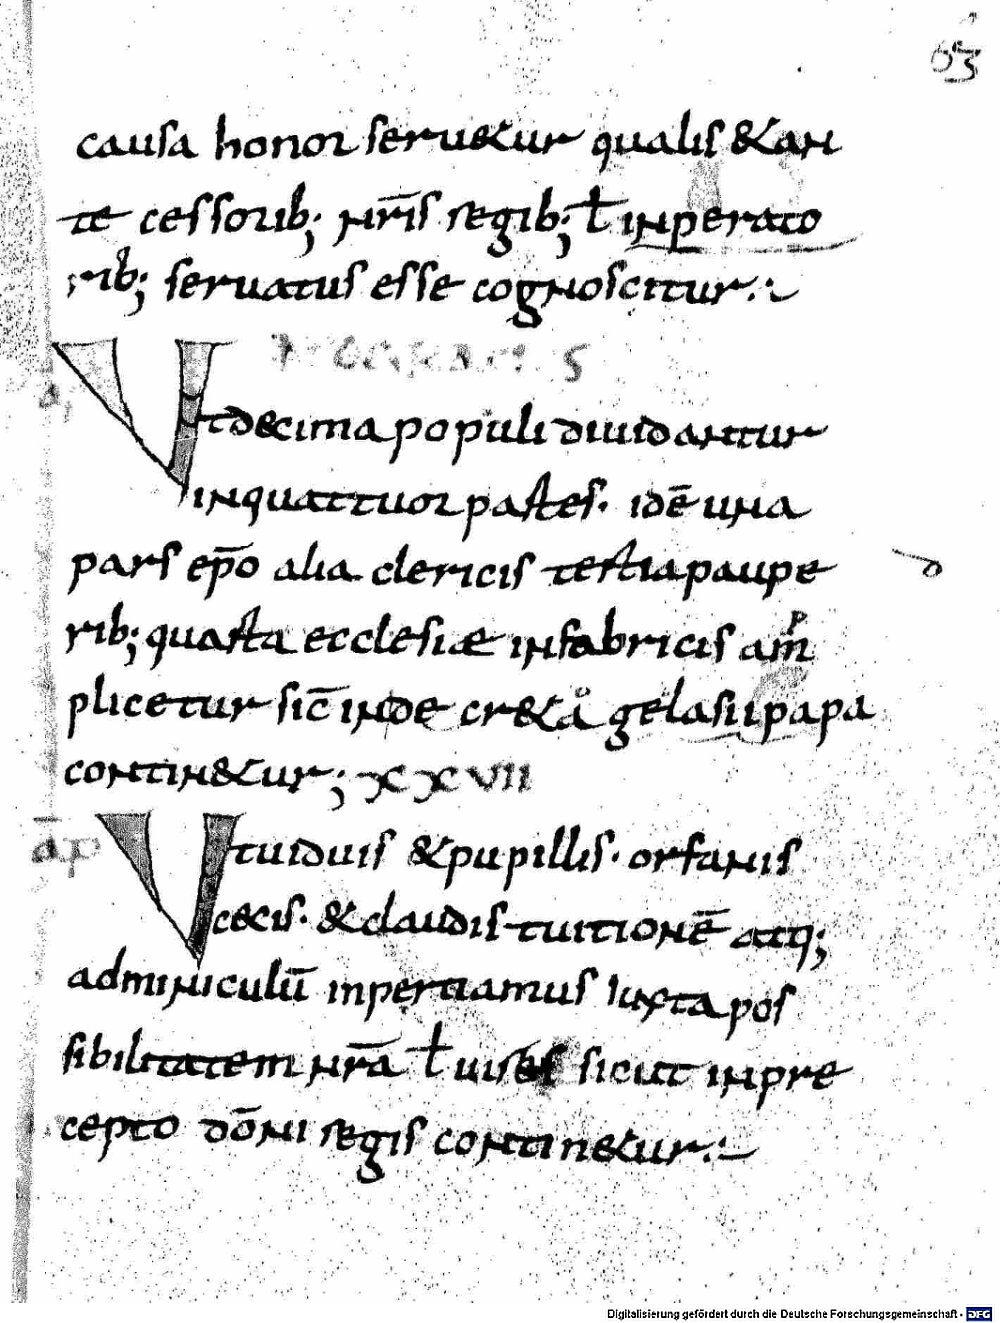 63
causa honor seruetur qualis & an
te cessorib; nr̄is regib; ł inperato
rib; seruatus esse cognoscitur
Ut decima populi diuidantur
in quattuor partes · idē una
pars ep̄o alia clericis tertia paupe
rib; quarta ecclesiæ in fabricis am
plicetur sic̄ inde cr&a gelasii papa
contin&ur; XXVII
Ut uiduis & pupillis · orfanis
cecis · & claudis tuitionē atq;
adminiculū inpertiamus iuxta pos
sibilitatem nr̄a ł uires sicut in pre
cepto dōni regis contin&ur
Digitalisierung gefördert durch die Deutsche Forschungsgemeinschaft - DFG